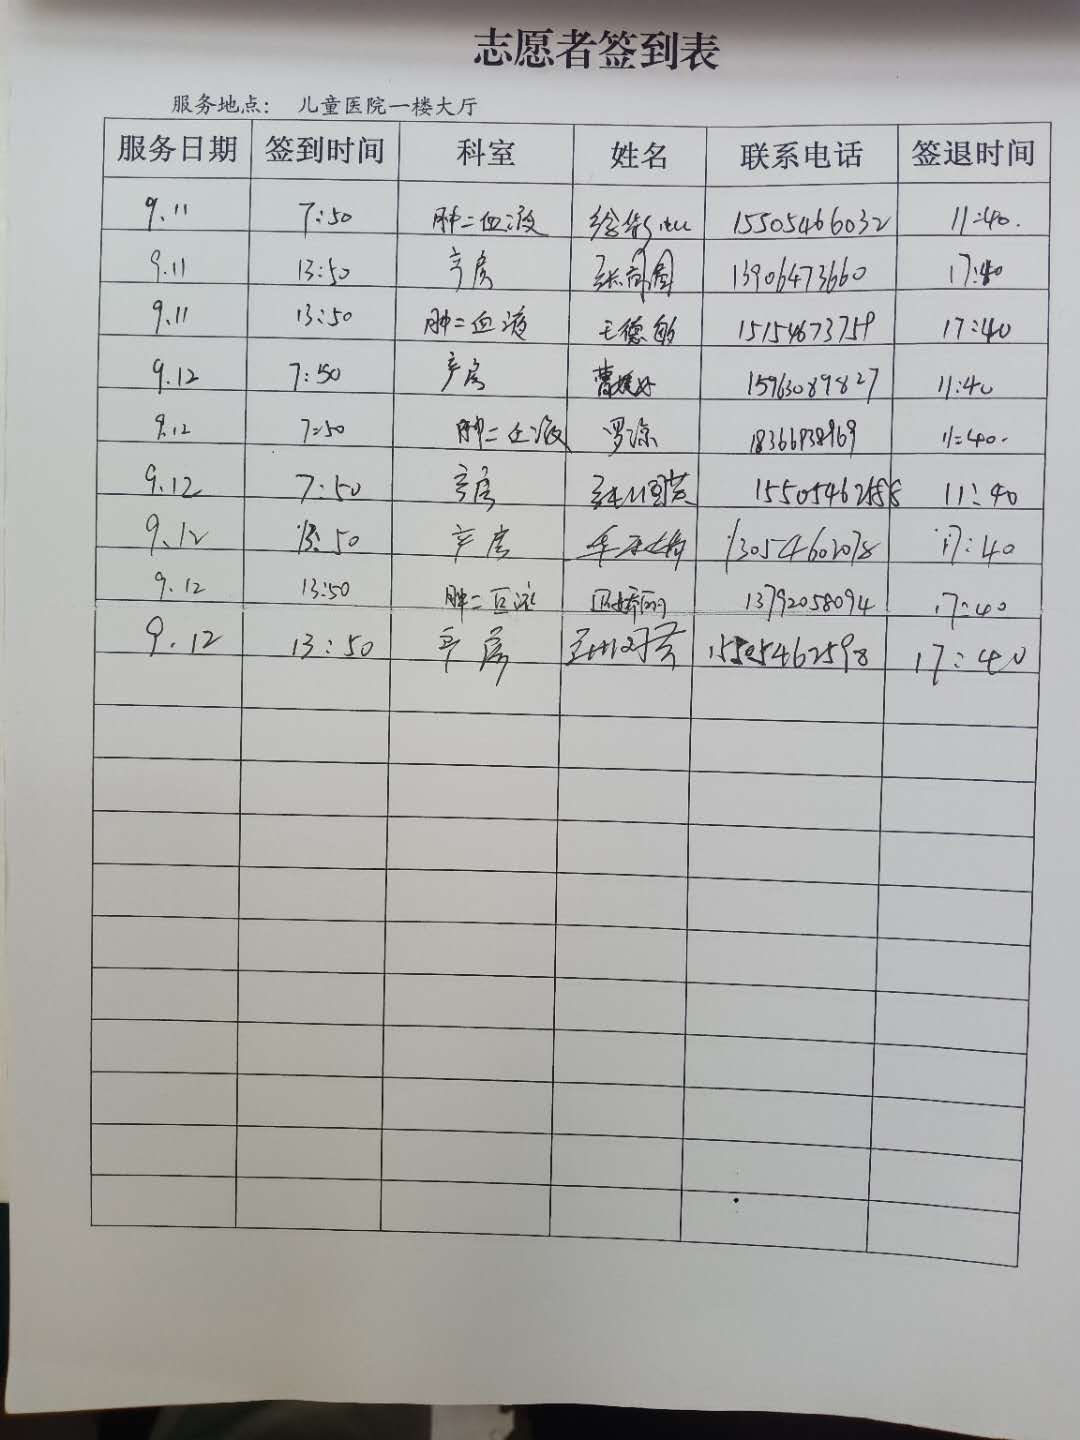 志愿者签到表
服务地点： 儿童医院一楼大厅
服务日期 签到时间 科室 姓名 联系电话 签退时间
9.11 7:50 肿二血液 15505466032 11:40.
9.11 13:50 产房 13906473660 17:40
9.11 13:50 肿二血液 王德敏 15154673759 17:40
9.12 7:50 产房 15963089827 11:40
9.12 7:50 肿二血液 18366938969 11:40.
9.12 7:50 产房 11:40
9.12 13:50 产房 13054602078 17:40
9.12 13:50 肿二 13792058094 17:40
9.12 13:50 产房 15505462598 17:40